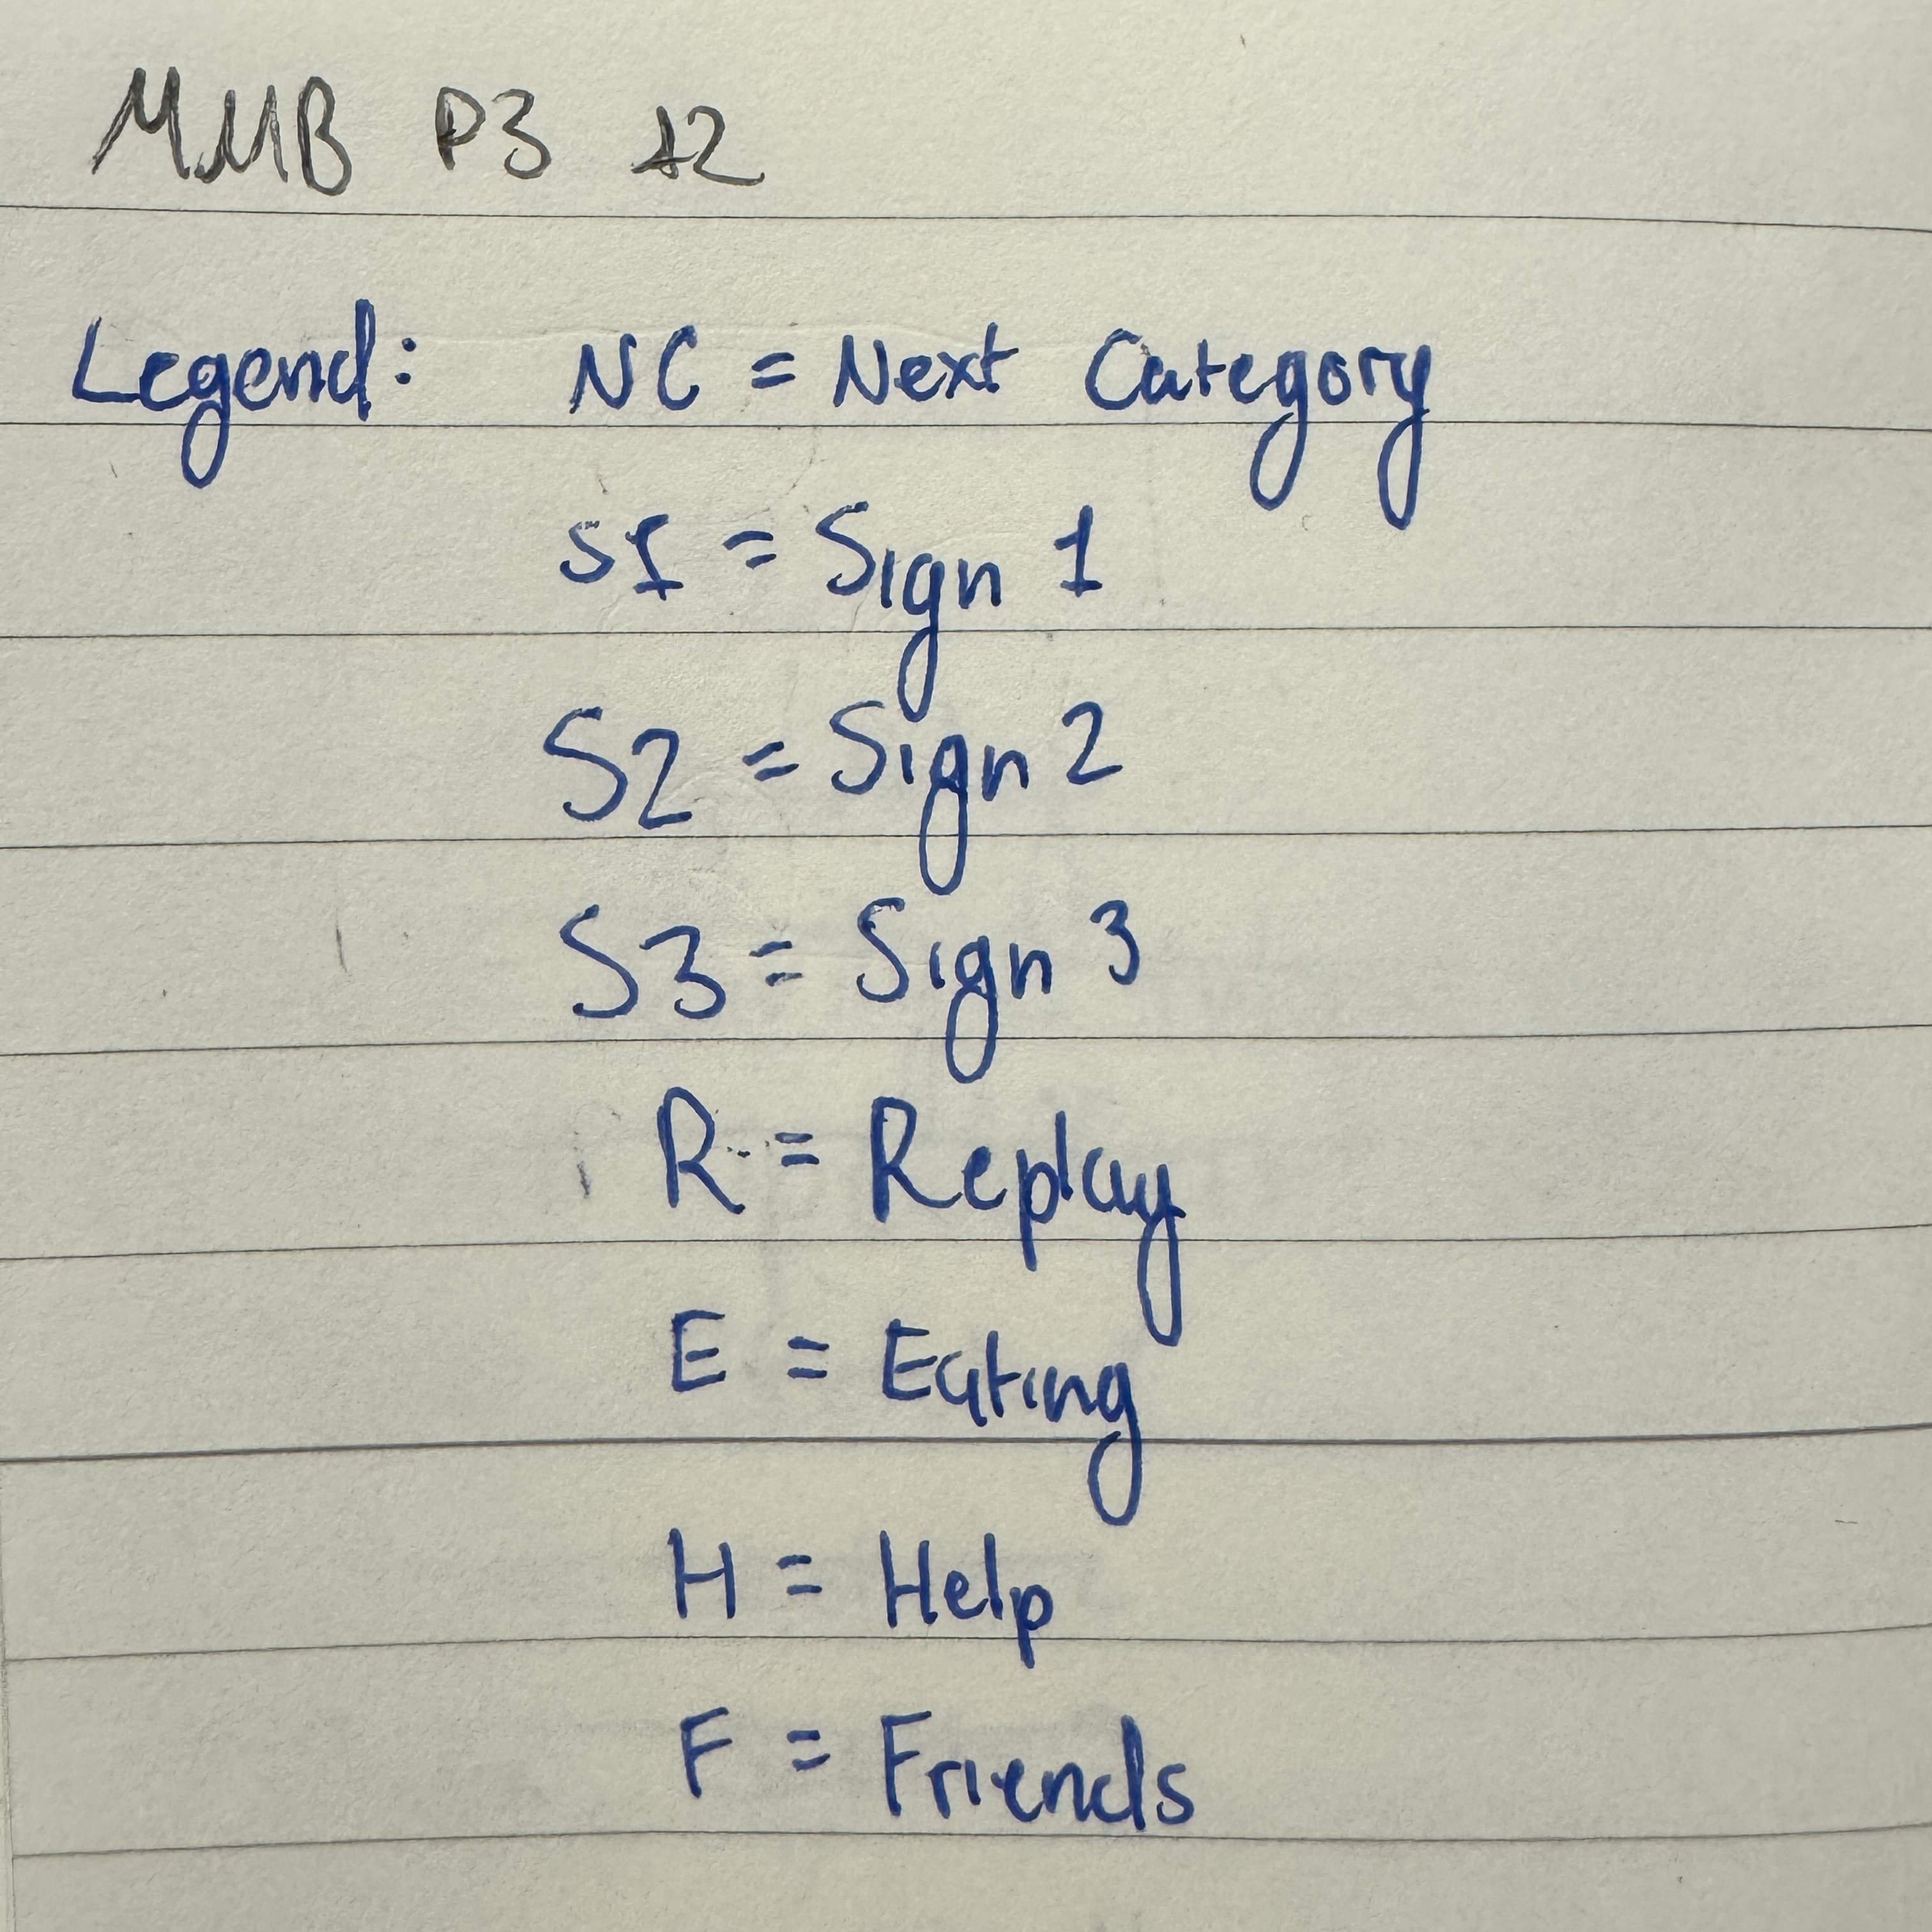 MMB P3 12
Legend: NC = Next Category
S1 = Sign 1
S2 = Sign 2
S3 = Sign 3
R = Replay
E = Eating
H = Help
F = Friends